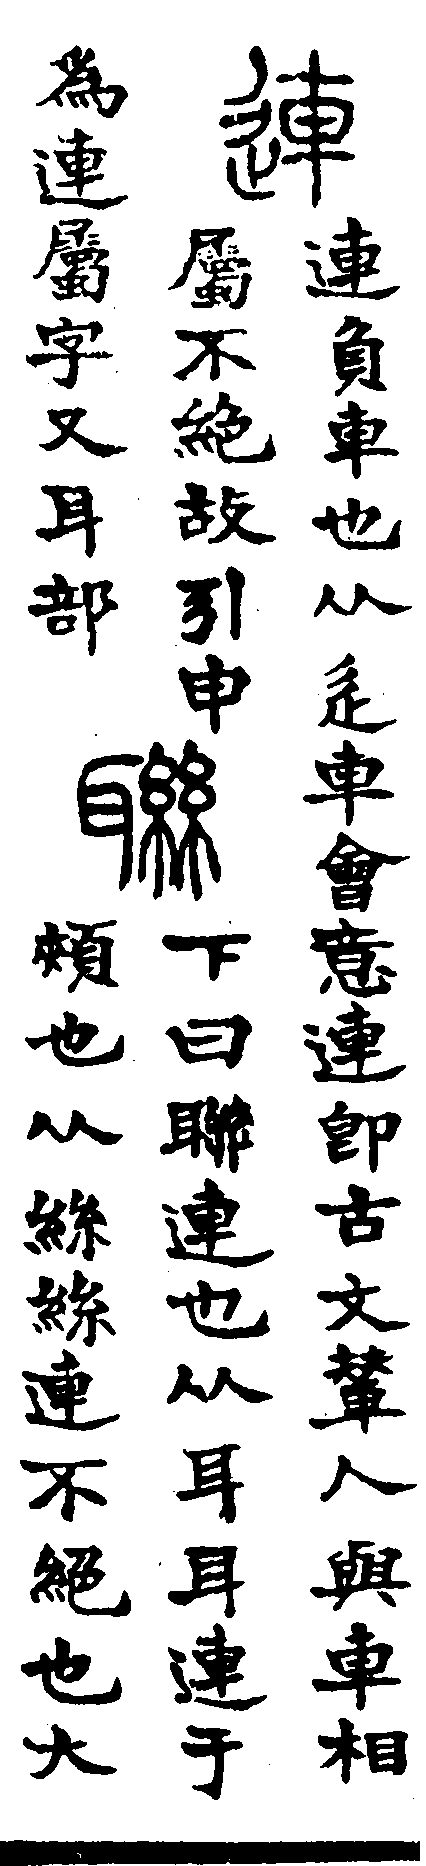 連
連負車也从辵車會意連即古文輦人與車相
屬不絕故引申
為連屬字又耳部
聯
下曰聯連也从耳耳連于
頰也从絲絲連不絕也大